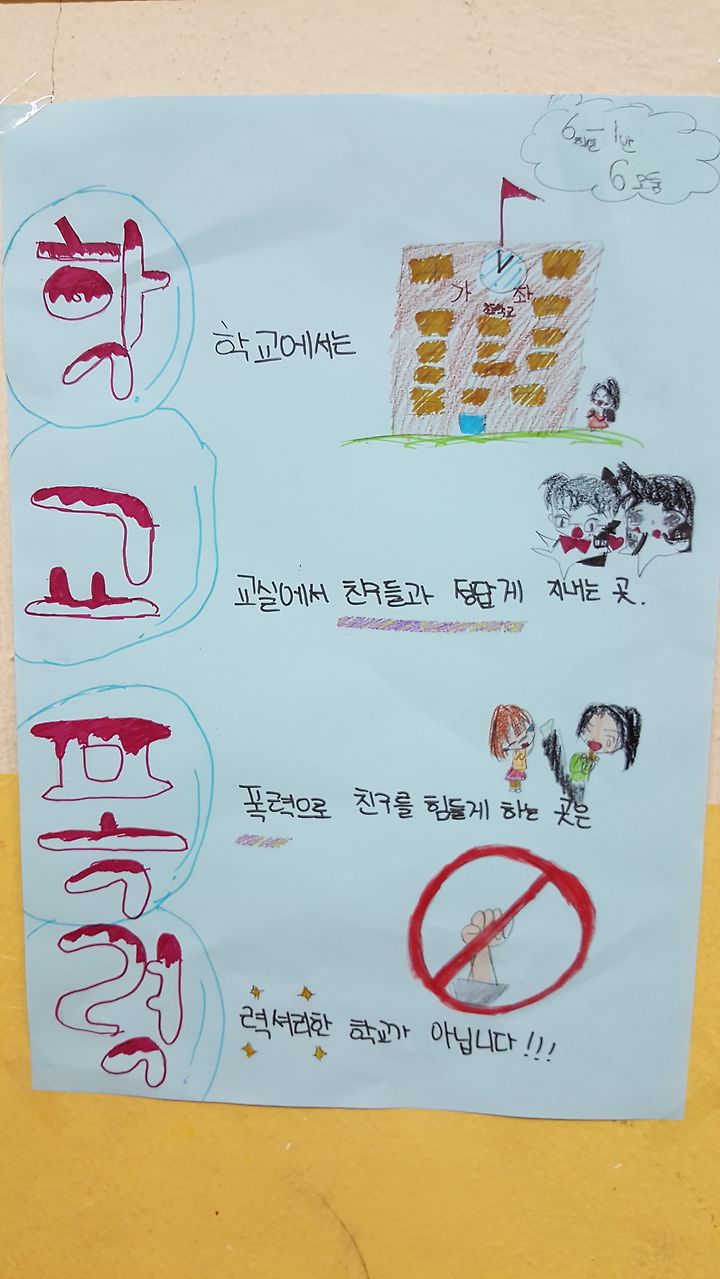 6학년 1반
6모둠
가좌
초등학교
학
학교에서는
교
교실에서 친구들과 정답게 지내는 곳.
폭
폭력으로 친구를 힘들게 하는 곳은
력
력셔리한 학교가 아닙니다!!!